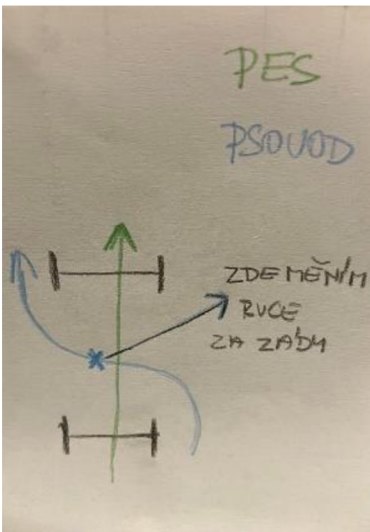 PES
PSOVOD
ZDE MĚNÍM
RUCE
ZA ZÁDY